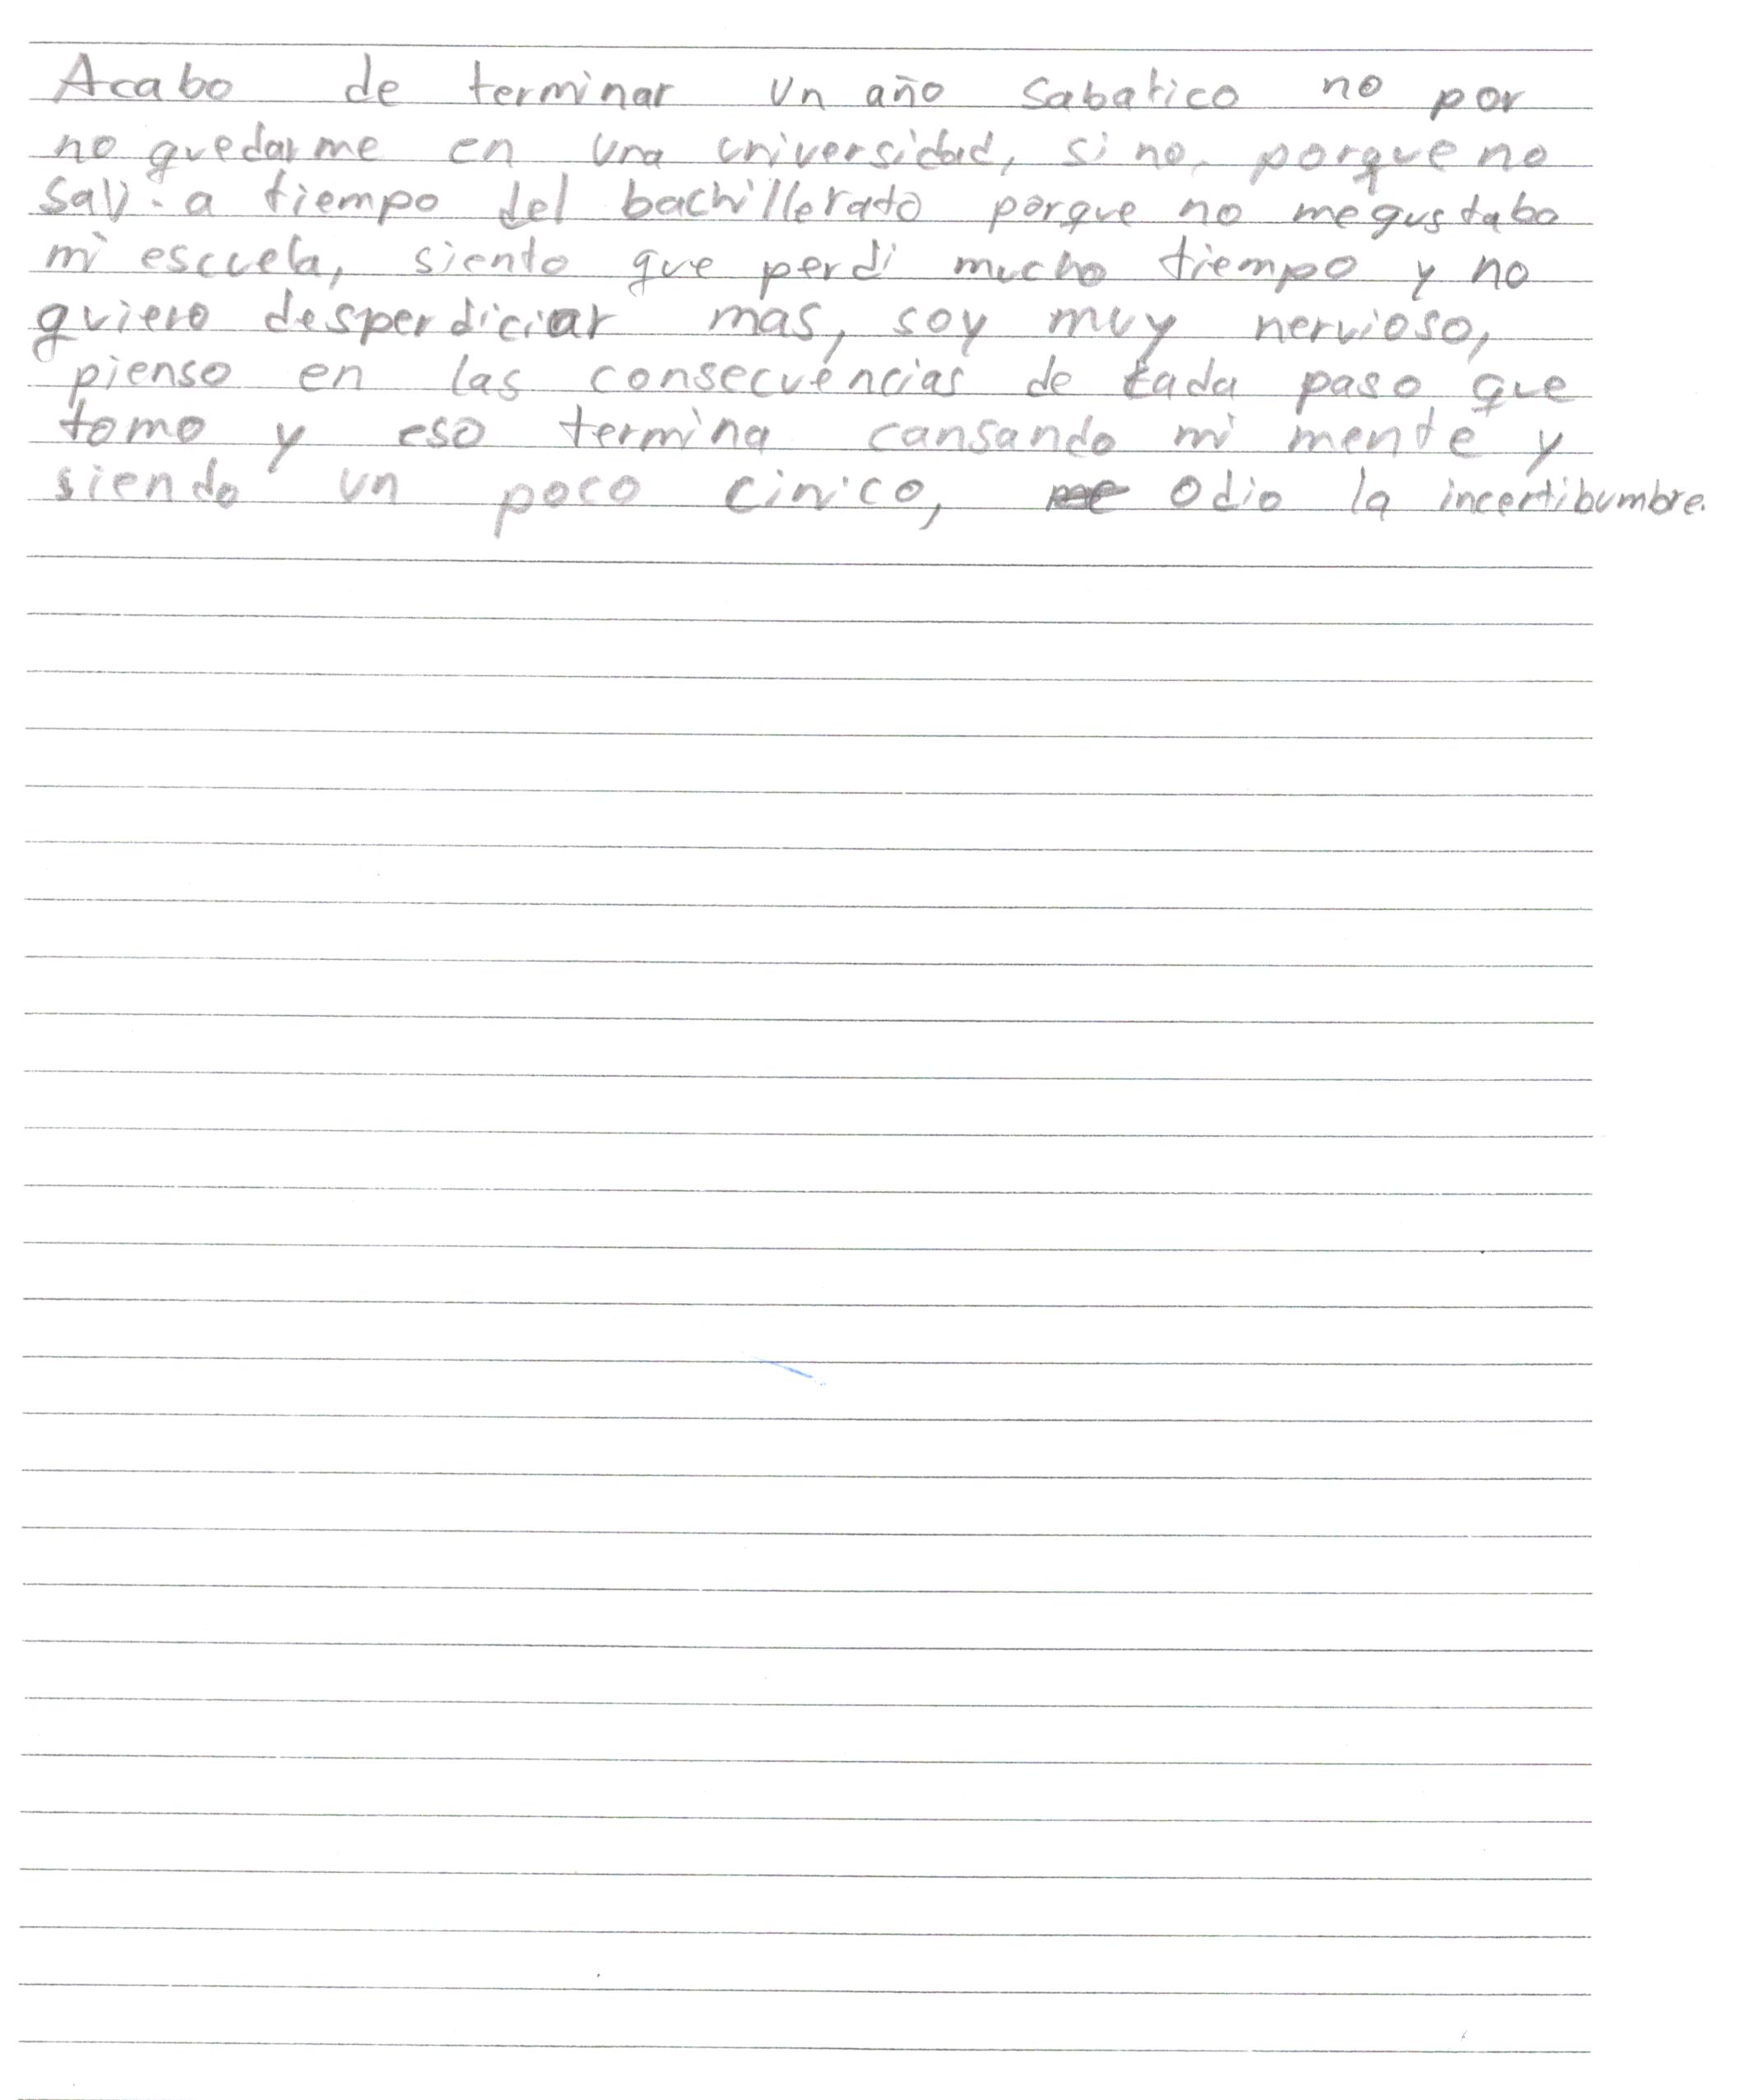 Acabo de terminar un año sabatico no por
no quedarme en una universidad, si no, porque no
sali a tiempo del bachillerato porque no me gustaba
mi escuela, siento que perdi mucho tiempo y no
quiero desperdiciar mas, soy muy nervioso,
pienso en las consecuencias de cada paso que
tomo y eso termina cansando mi mente y
siendo un poco cinico, odio la incertibumbre.